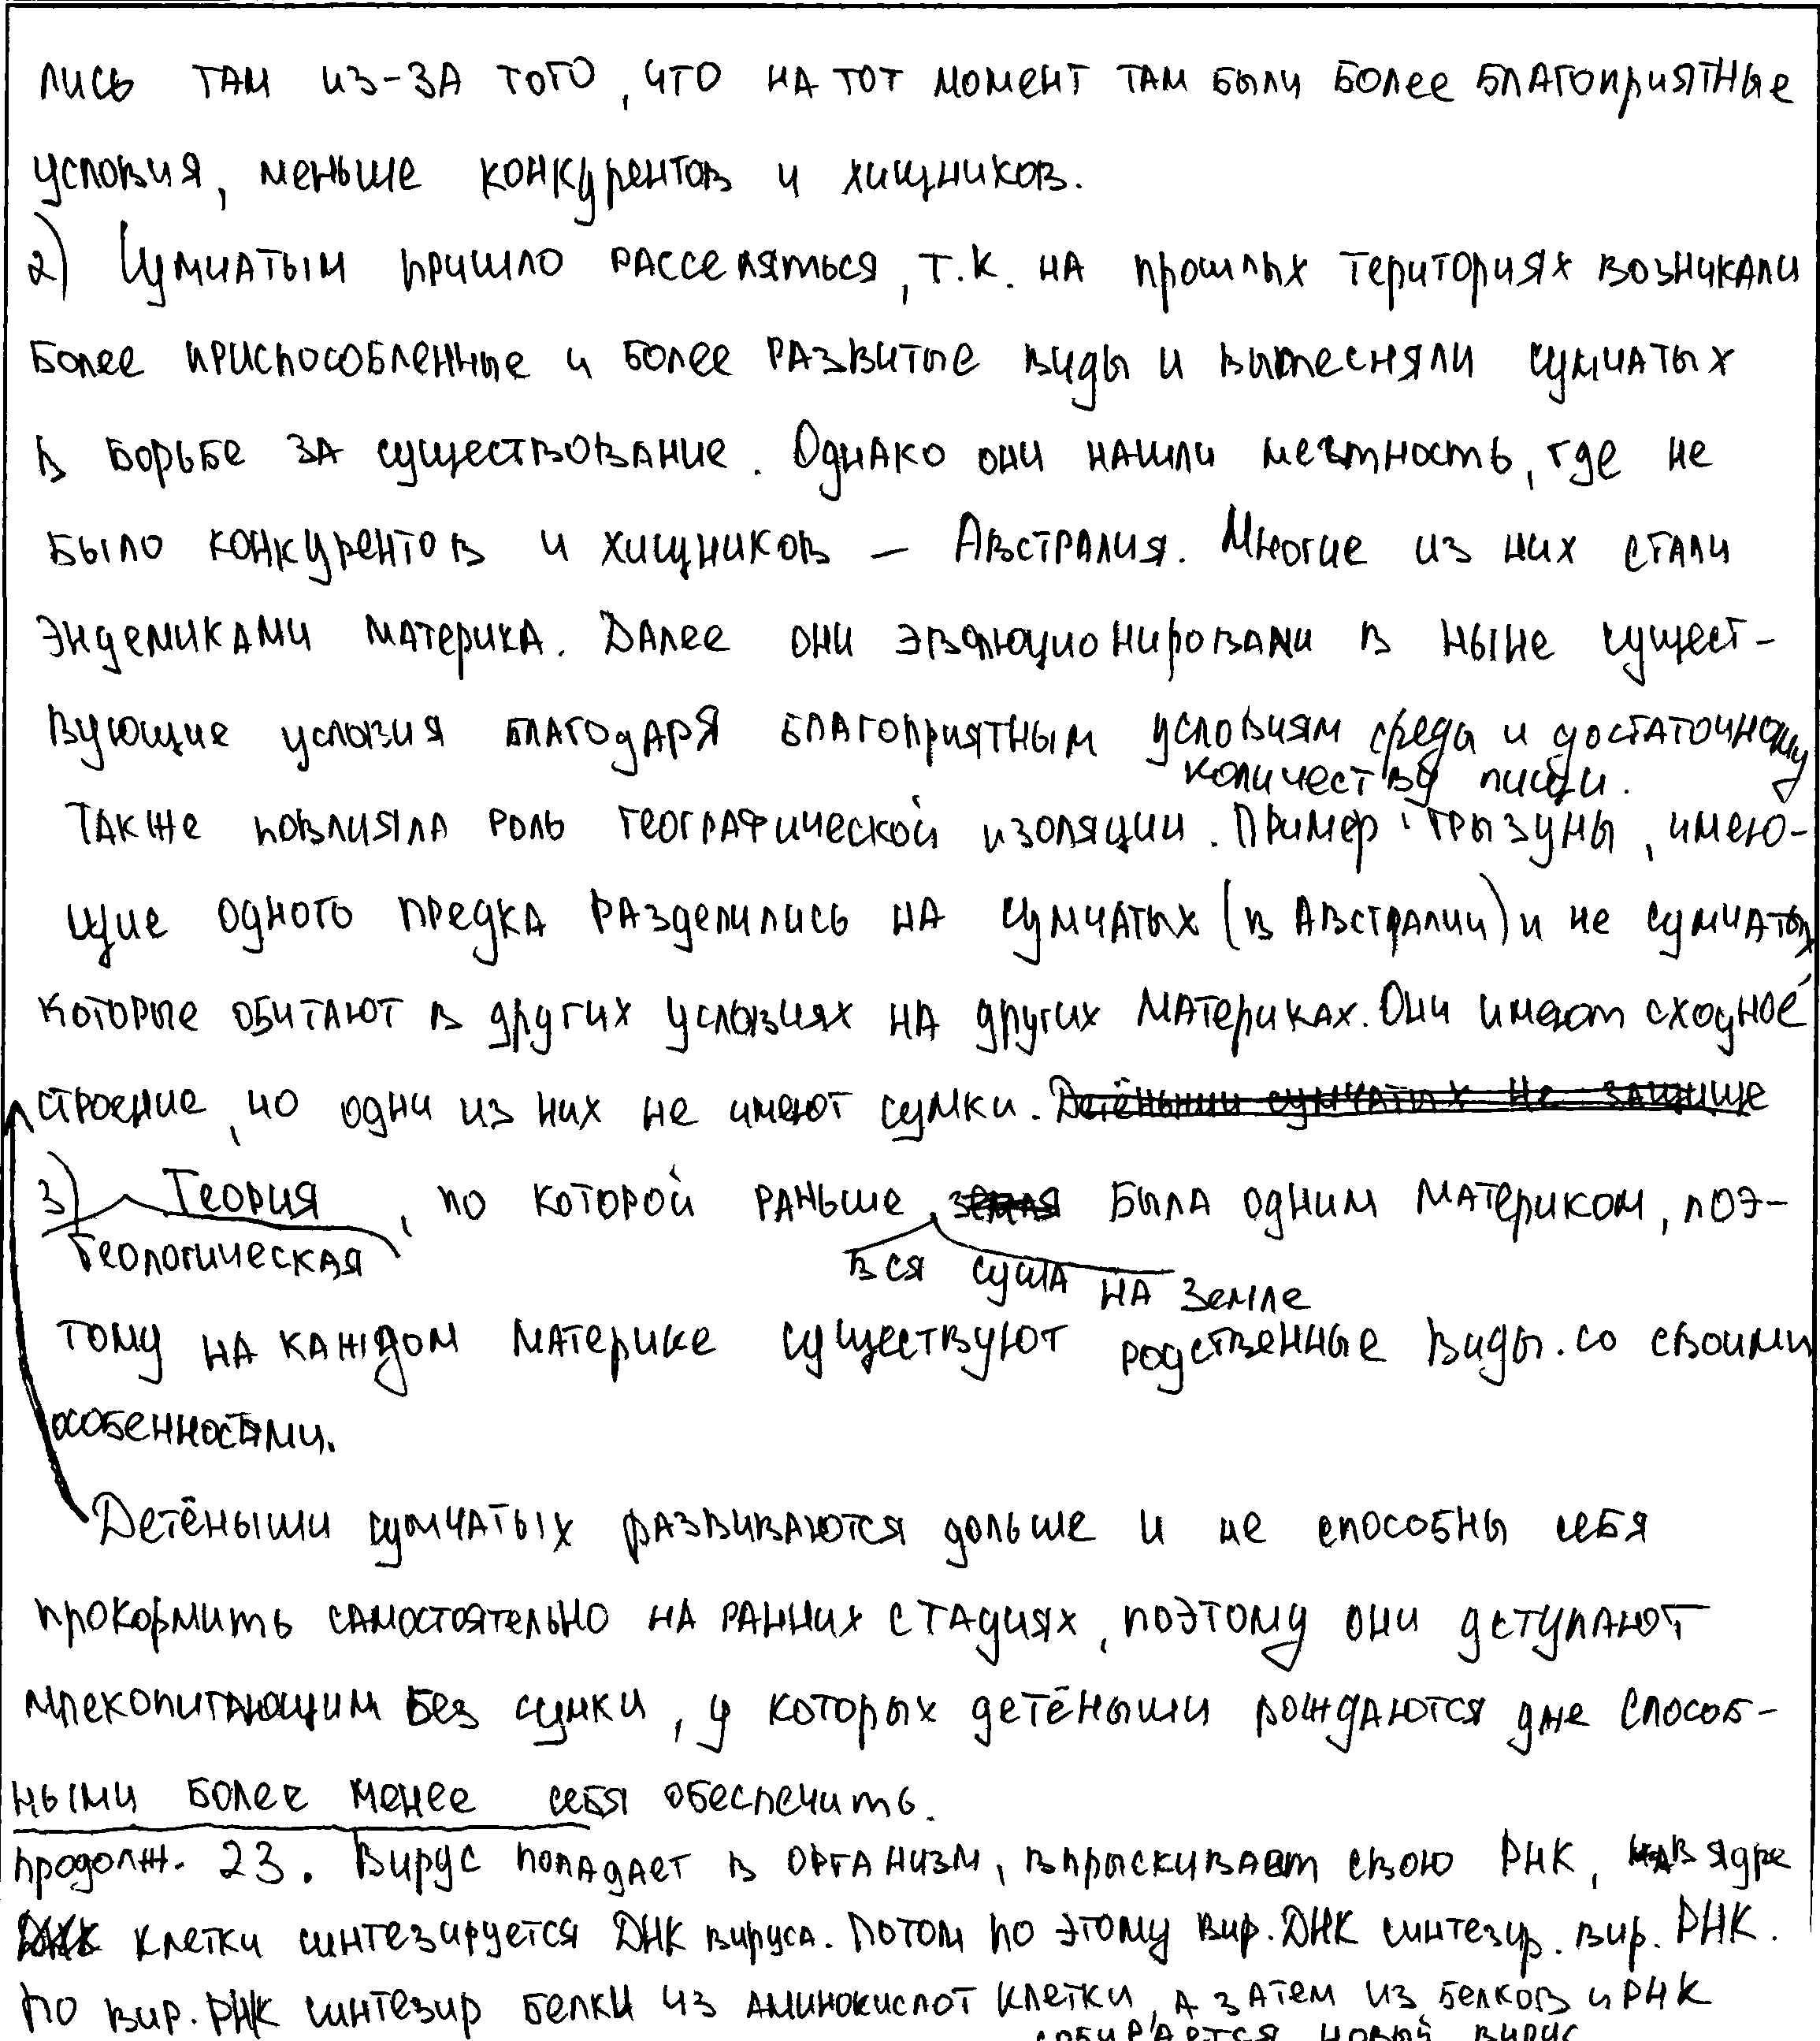 лись там из-за того, что на тот момент там были более благоприятные
условия, меньше конкурентов и хищников.
2) Сумчатым пришло расселяться, т.к. на прошлых териториях возникали
более приспособленные и более развитые виды и вытесняли сумчатых
в борьбе за существование. Однако они нашли местность, где не
было конкурентов и хищников – Австралия. Многие из них стали
эндемиками материка. Далее они эволюционировали в ныне сущест-
вующие условия благодаря благоприятным условиям среды и достаточному
количеству пищи.
Также повлияла роль географической изоляции. Пример: грызуны, имею-
щие одного предка разделились на сумчатых (в Австралии) и не сумчатых
которые обитают в других условиях на других материках. Они имеют сходное
строение, но одни из них не имеют сумки. Детёныши сумчатых не защище
3) Теория, по которой раньше земля была одним материком, поэ-
геологическая вся суша на Земле
тому на каждом материке существуют родственные виды. со своими
особенностями.
Детёныши сумчатых развиваются дольше и не способны себя
прокормить самостоятельно на ранних стадиях, поэтому они уступают
млекопитающим без сумки, у которых детёныши рождаются уже способ-
ными более менее себя обеспечить.
продолж. 23. Вирус попадает в организм, впрыскивает свою РНК, в ядре
клетки синтезируется ДНК вируса. Потом по этому вир. ДНК синтезир. вир. РНК.
По вир. РНК синтезир белки из аминокислот клетки, а затем из белков и РНК
собирается новый вирус